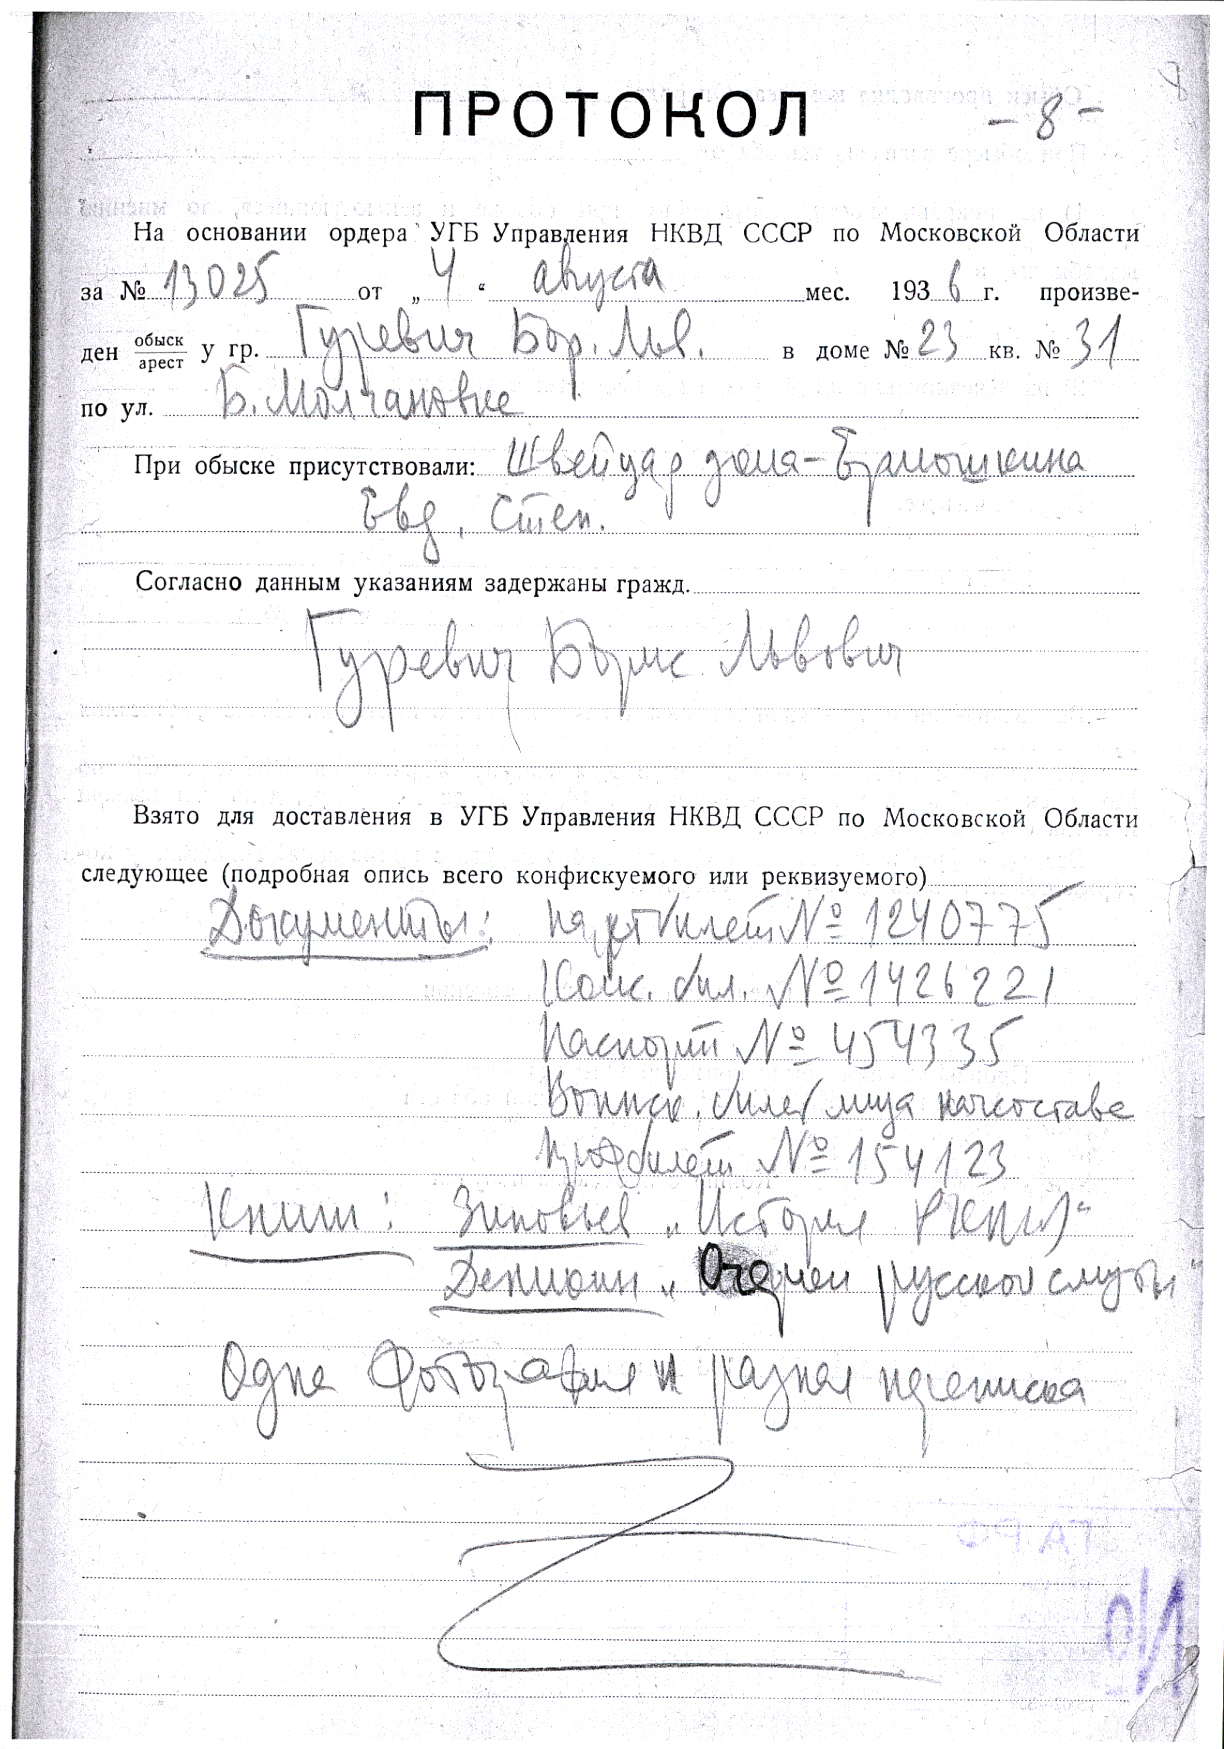 ПРОТОКОЛ - 8 -
На основании ордера УГБ Управления НКВД СССР по Московской Области
за № 13025 от „ 4 “ августа мес. 1936 г. произве-
ден обыск/арест у гр. Гуревич Бор. Льв. в доме № 23 кв. № 31
по ул. Б. Молчановке
При обыске присутствовали: Швейцар дома - Ермошкина
Евд. Степ.
Согласно данным указаниям задержаны гражд.
Гуревич Борис Львович
Взято для доставления в УГБ Управления НКВД СССР по Московской Области
следующее (подробная опись всего конфискуемого или реквизуемого)
Документы: партбилет № 1240775
Комс. бил. № 1426221
Паспорт № 454335
Воинск. билет лица начсостава
Профбилет № 154123
Книги: Зиновьев „История РКП(б)“
Деникин „Очерки русской смуты“
Одна фотография и разная переписка
ГА РФ